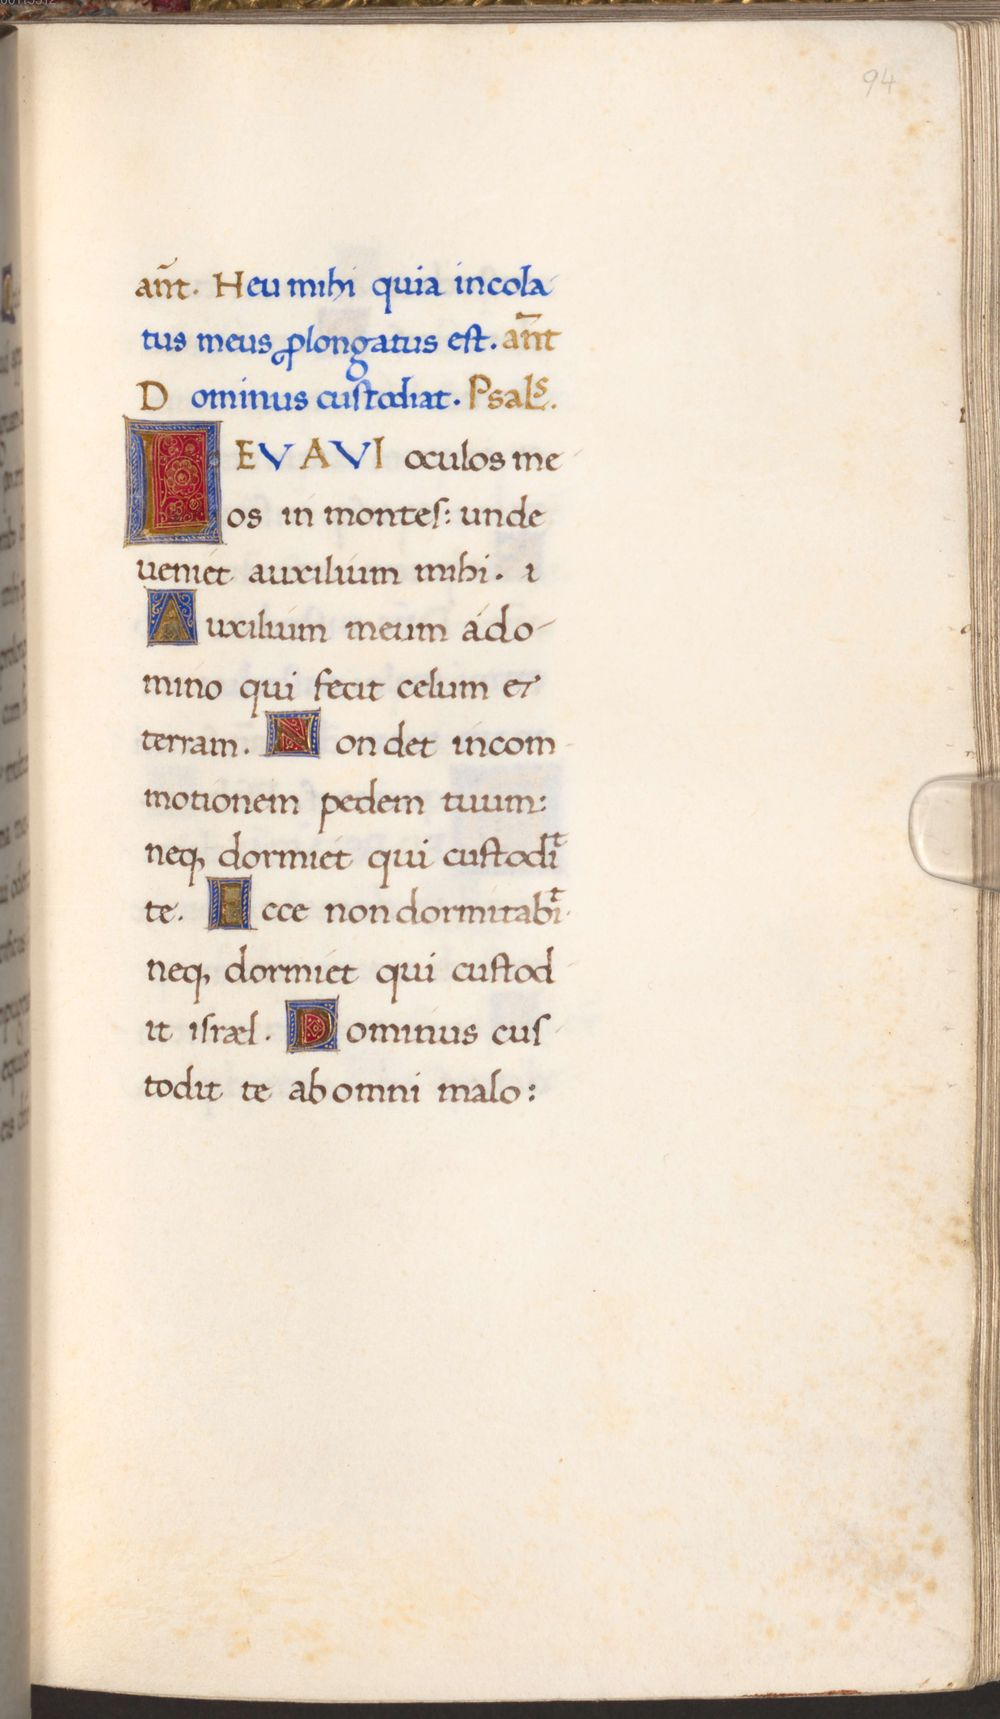 94
an̄t. Heu mihi quia incola
tus meus ꝓlongatus est. an̄t
Dominus custodiat. Psalˢ.
LEVAVI oculos me
os in montes: unde
ueniet auxilium mihi. ı
Auxilium meum a do
mino qui fecit celum et
terram. Non det in com
motionem pedem tuum:
neq, dormiet qui custodıᵗ
te. Ecce non dormitabıᵗ
neq, dormiet qui custod
it israel. Dominus cus
todit te ab omni malo: